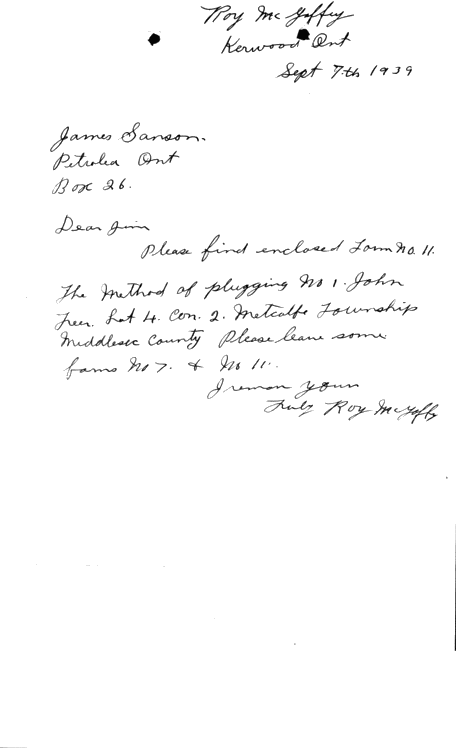 Roy McGaffey
Kerwood Ont
Sept 7th 1939
James Sanson.
Petrolea Ont
Box 26.
Dear Jim
Please find enclosed Form No. 11.
The Method of plugging No 1. John
Lot 4. Con. 2. Metcalfe Township
Middlesex County Please leave some
forms No 7. & No 11.
I remain yours
Truly Roy McGaffey